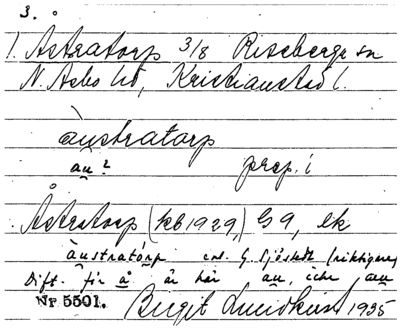 3. Å
1. Åstratorp 3/8 Riseberga sn
N. Åsbo hd, Kristianstad l.
àustratàrp
au? prep. i
Åstratorp (kb 1929) G 9, ek
àustratórp enl. G. Sjöstedt (riktigare)
Dift. för å är här au, icke au
Nr 5501. Birgit Lundkvist 1935